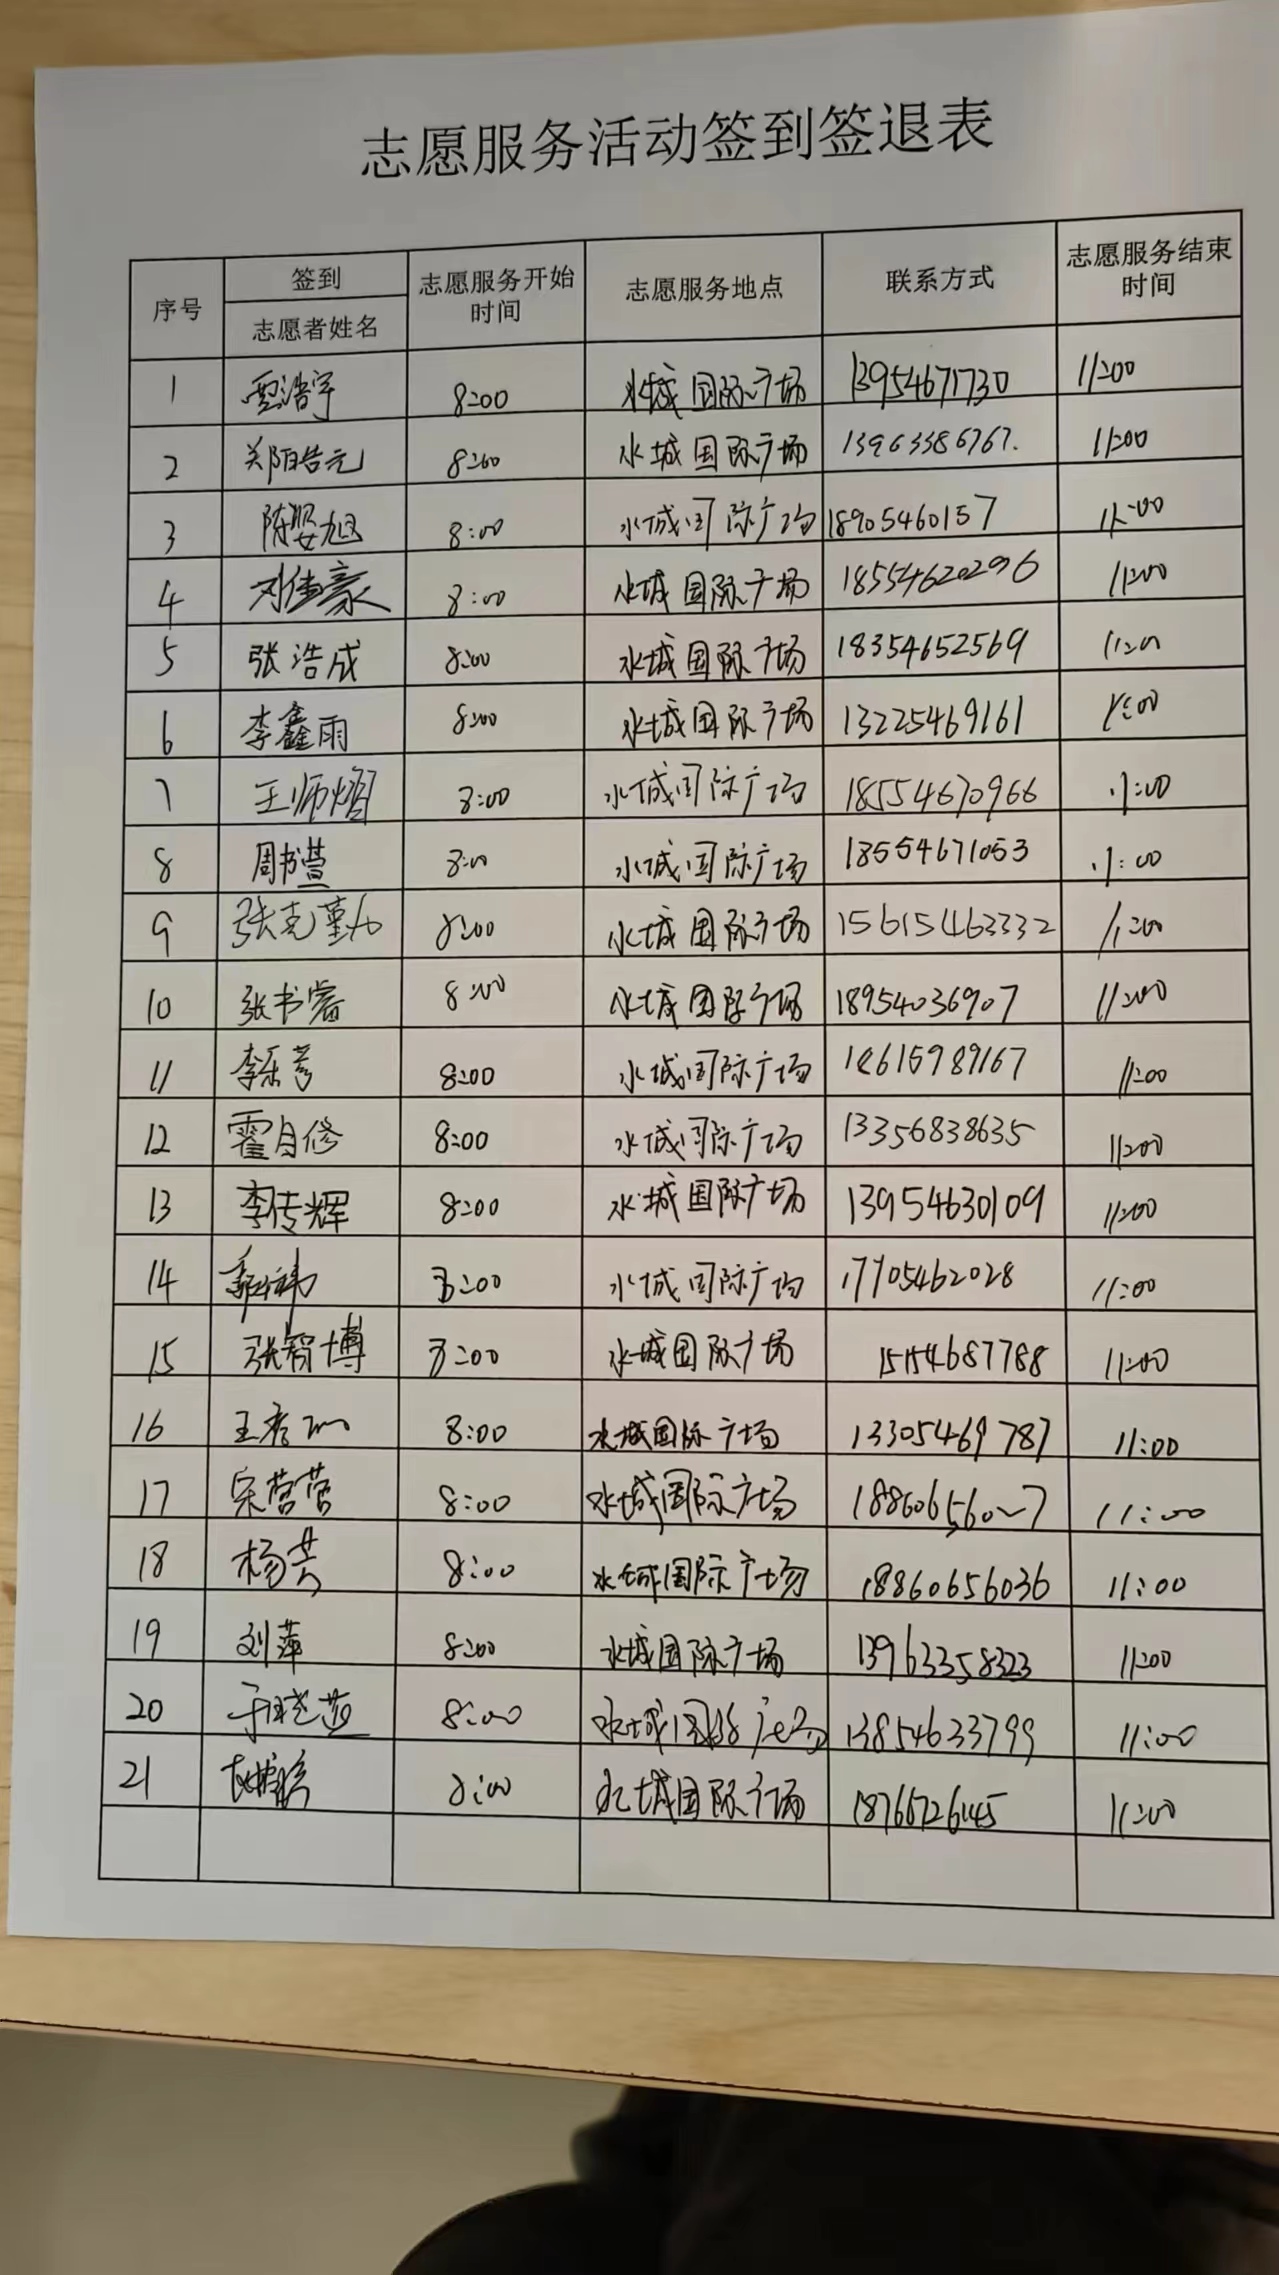 志愿服务活动签到签退表
序号 签到 志愿者姓名 志愿服务开始时间 志愿服务地点 联系方式 志愿服务结束时间
1 贾浩宇 8:00 水城国际广场 13954671730 11:00
2 郑陌浩元 8:00 水城国际广场 13963386767. 11:00
3 陈翌旭 8:00 水城国际广场 18905460157 11:00
4 刘佳豪 8:00 水城国际广场 18554620296 11:00
5 张浩成 8:00 水城国际广场 18354652569 11:00
6 李鑫雨 8:00 水城国际广场 13225469161 11:00
7 王师熠 8:00 水城国际广场 18554670966 11:00
8 周书萱 8:00 水城国际广场 18554671053 11:00
9 张克勤 8:00 水城国际广场 15615463332 11:00
10 张书睿 8:00 水城国际广场 18954036907 11:00
11 李乐 8:00 水城国际广场 11:00
12 霍自修 8:00 水城国际广场 13356838635 11:00
13 李传辉 8:00 水城国际广场 13954630109 11:00
14 8:00 水城国际广场 17705462028 11:00
15 张智博 8:00 水城国际广场 15154687788 11:00
16 王 8:00 水城国际广场 13305469787 11:00
17 宋营营 8:00 水城国际广场 11:00
18 杨芸 8:00 水城国际广场 18860656036 11:00
19 刘萍 8:00 水城国际广场 13963358323 11:00
20 于晓燕 8:00 水城国际广场 13854633799 11:00
21 8:00 水城国际广场 11:00